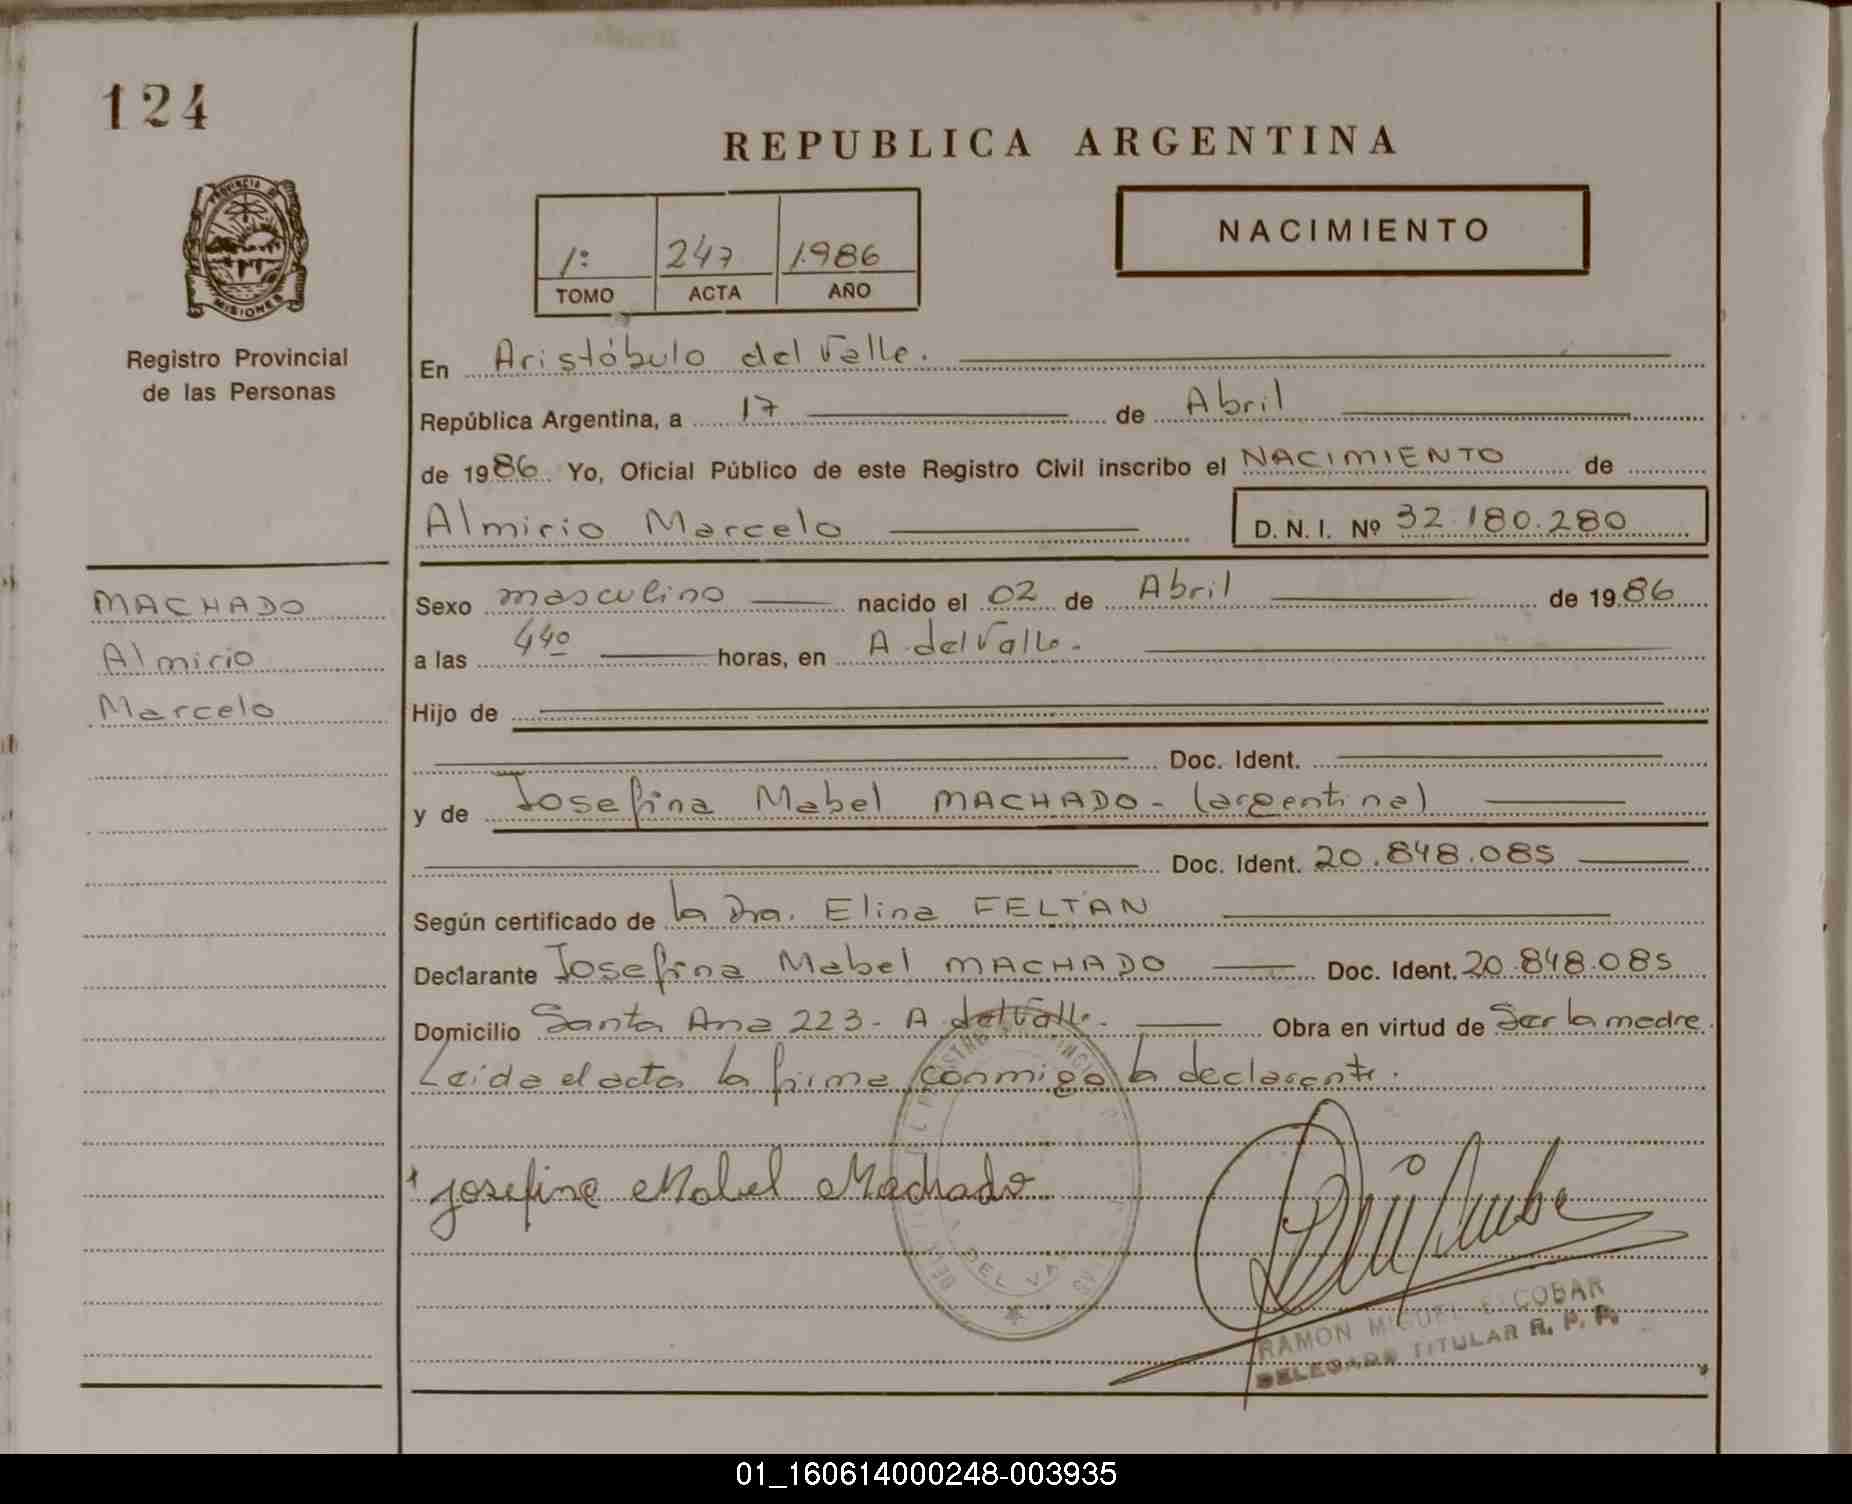 124
REPUBLICA ARGENTINA
PROVINCIA DE
MISIONES
NACIMIENTO
1º 247 1986
TOMO ACTA AÑO
Registro Provincial
de las Personas
En Aristóbulo del Valle.
República Argentina, a 17 de Abril
de 1986 Yo, Oficial Público de este Registro Civil inscribo el NACIMIENTO de
Almirio Marcelo D. N. I. Nº 32.180.280
MACHADO
Almirio
Marcelo
Sexo masculino nacido el 02 de Abril de 1986
a las 440 horas, en A del Valle.
Hijo de
Doc. Ident.
y de Josefina Mabel MACHADO - (argentina)
Doc. Ident. 20.848.085
Según certificado de la Dra. Elina FELTAN
Declarante Josefina Mabel MACHADO Doc. Ident. 20.848.085
Domicilio Santa Ana 223 - A del Valle. Obra en virtud de Ser la madre
Leida el acta la firma conmigo la declarante.
Josefina Mabel Machado
DEL VA
RAMON MIGUEL ESCOBAR
DELEGADO TITULAR R. P. P.
01_160614000248-003935